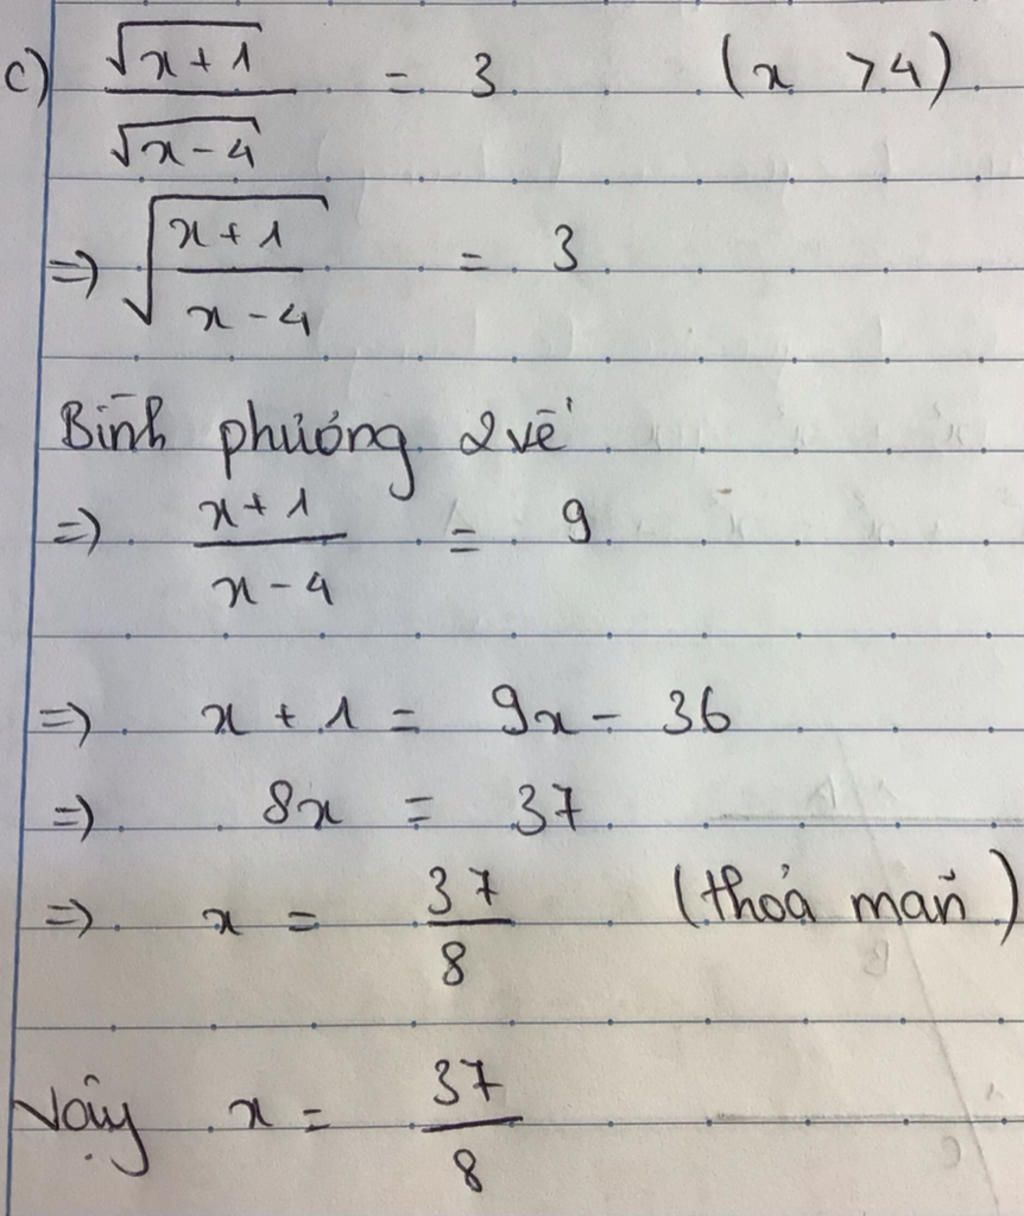 c) √(x+1) / √(x-4) = 3 (x > 4)
=> √((x+1)/(x-4)) = 3
Bình phương 2 vế
=> (x+1)/(x-4) = 9
=> x + 1 = 9x - 36
=> 8x = 37
=> x = 37/8 (thỏa mãn)
Vậy x = 37/8